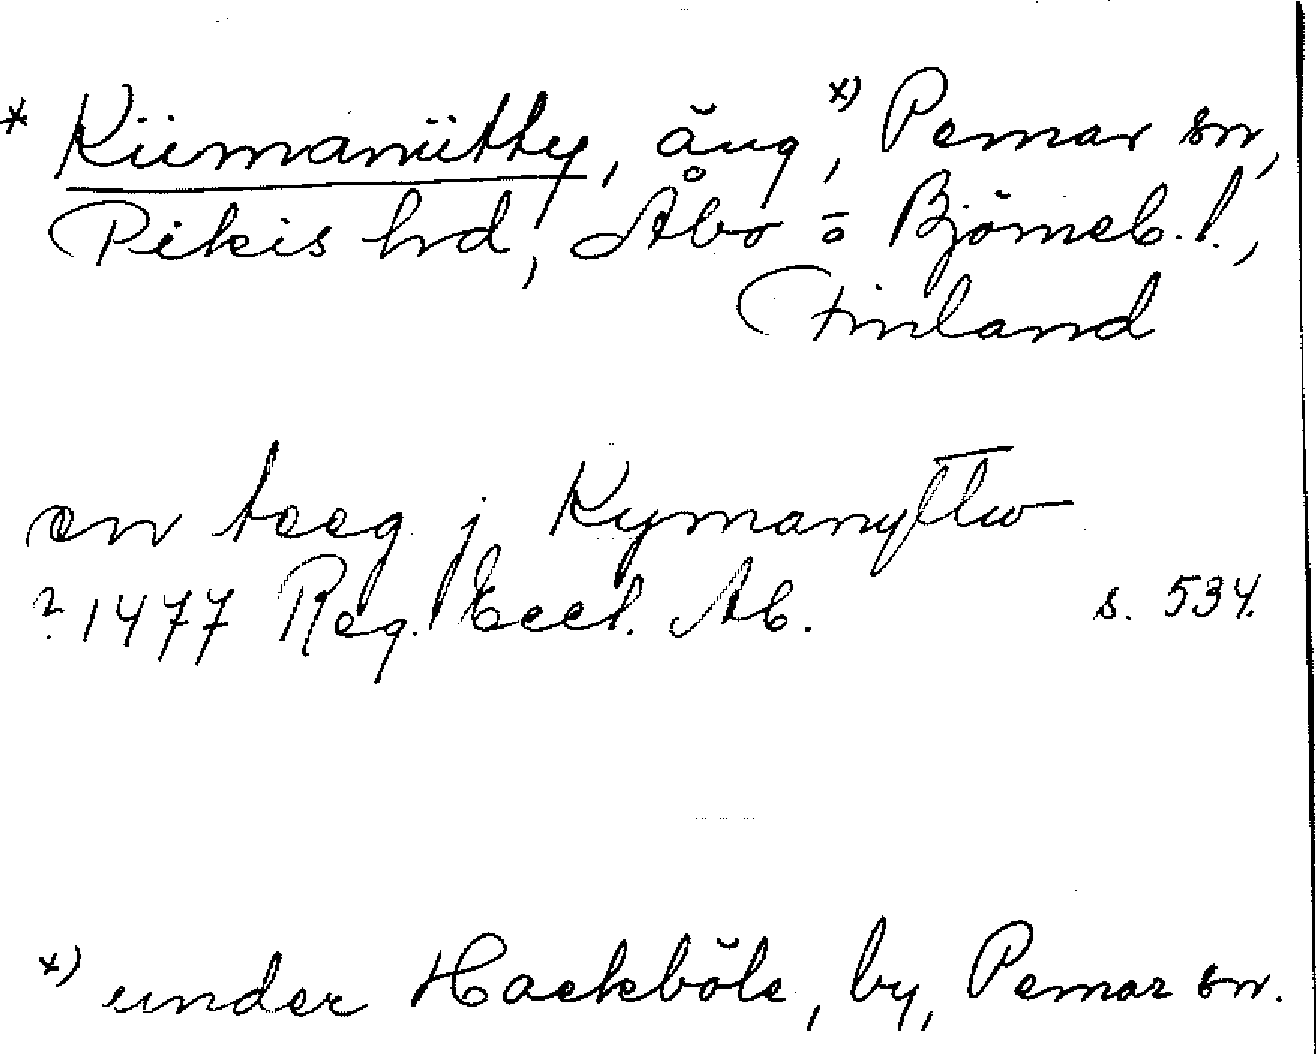 * Kiimaniitty, äng x), Pemar sn,
Pikis hd, Åbo o Björneb. l.,
Finland
en teeg j Kymanyttw
? 1477 Reg. Eccl. Ab. s. 534.
x) under Hackböle, by, Pemar sn.